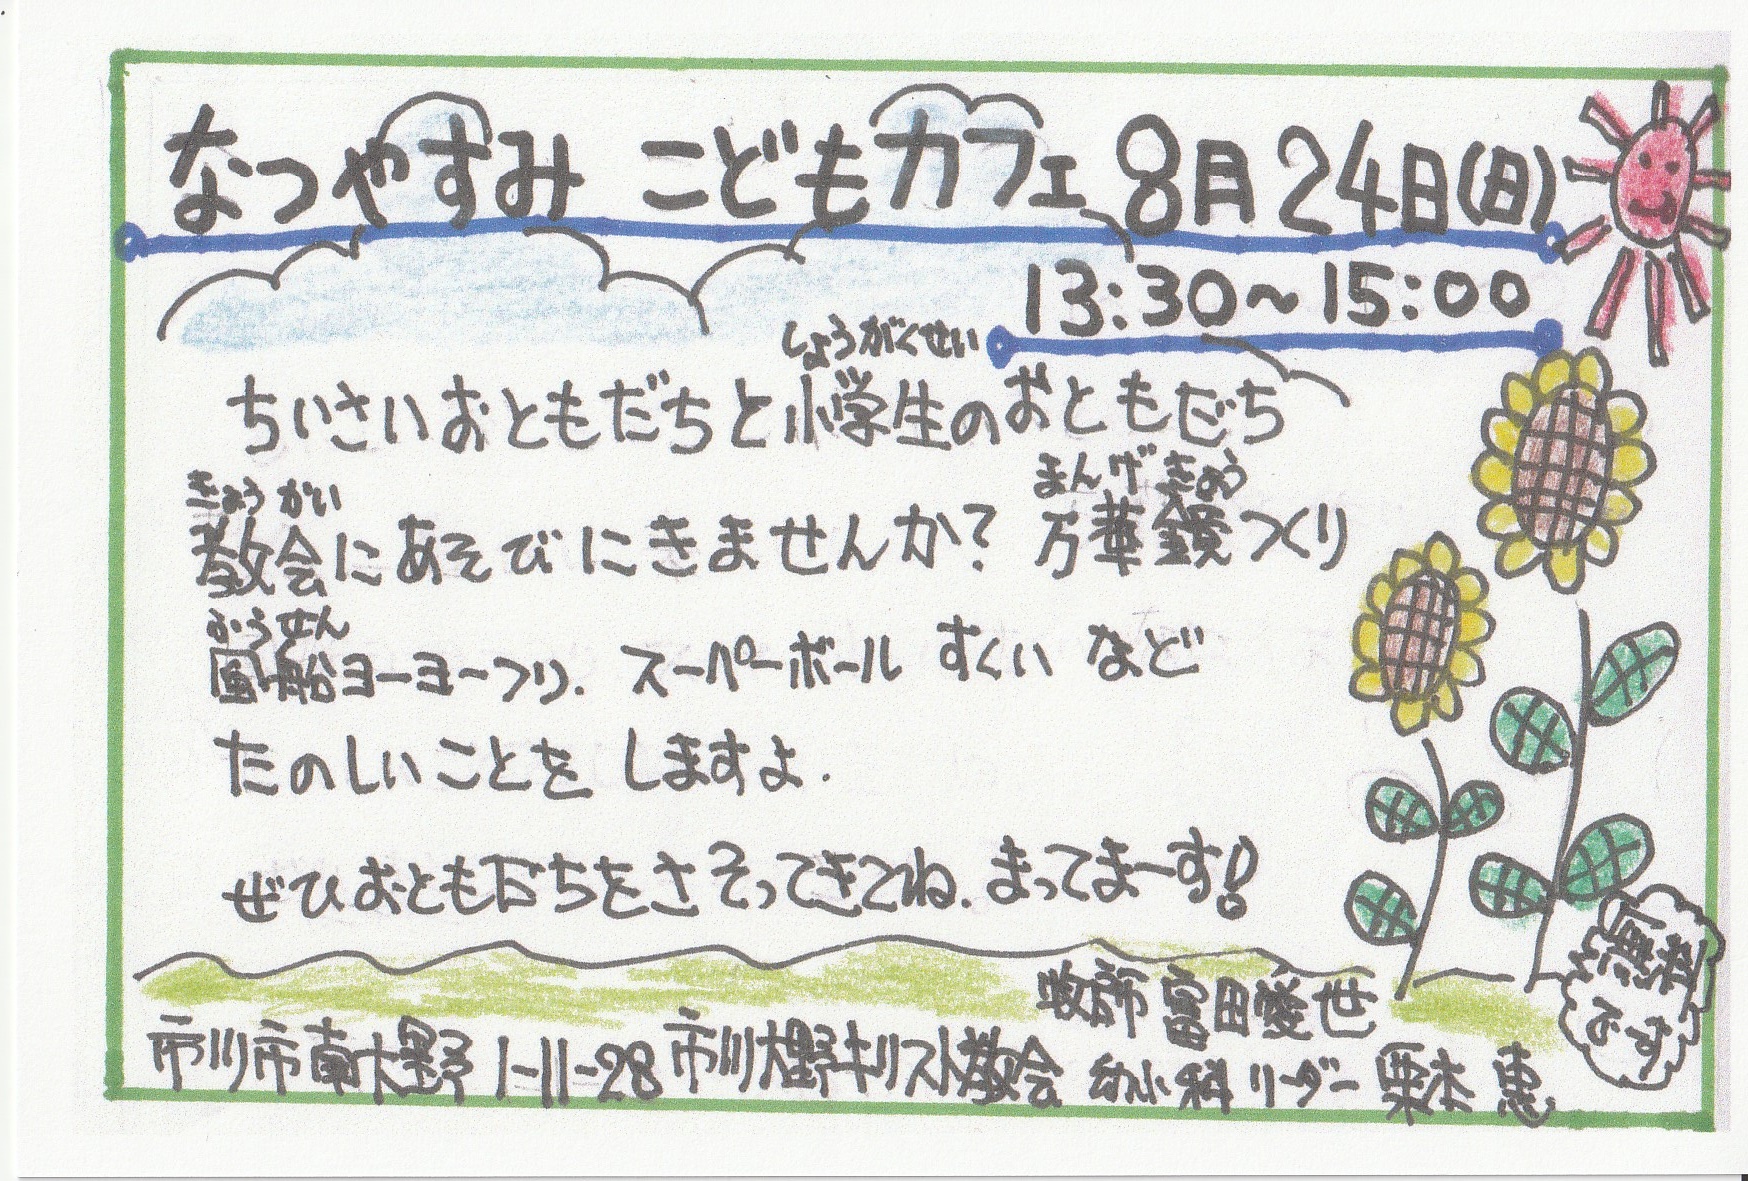 なつやすみ こどもカフェ 8月24日(日)
13:30~15:00
しょうがくせい
ちいさいおともだちと小学生のおともだち
きょうかい まんげきょう
教会にあそびにきませんか? 万華鏡つくり
ふうせん
風船ヨーヨーつり. スーパーボール すくい など
たのしいことを しますよ.
ぜひおともだちをさそってきてね. まってまーす!
無料
です
牧師 富田愛世
市川市南大野 1-11-28 市川大野キリスト教会 幼小科 リーダー 栗本 恵